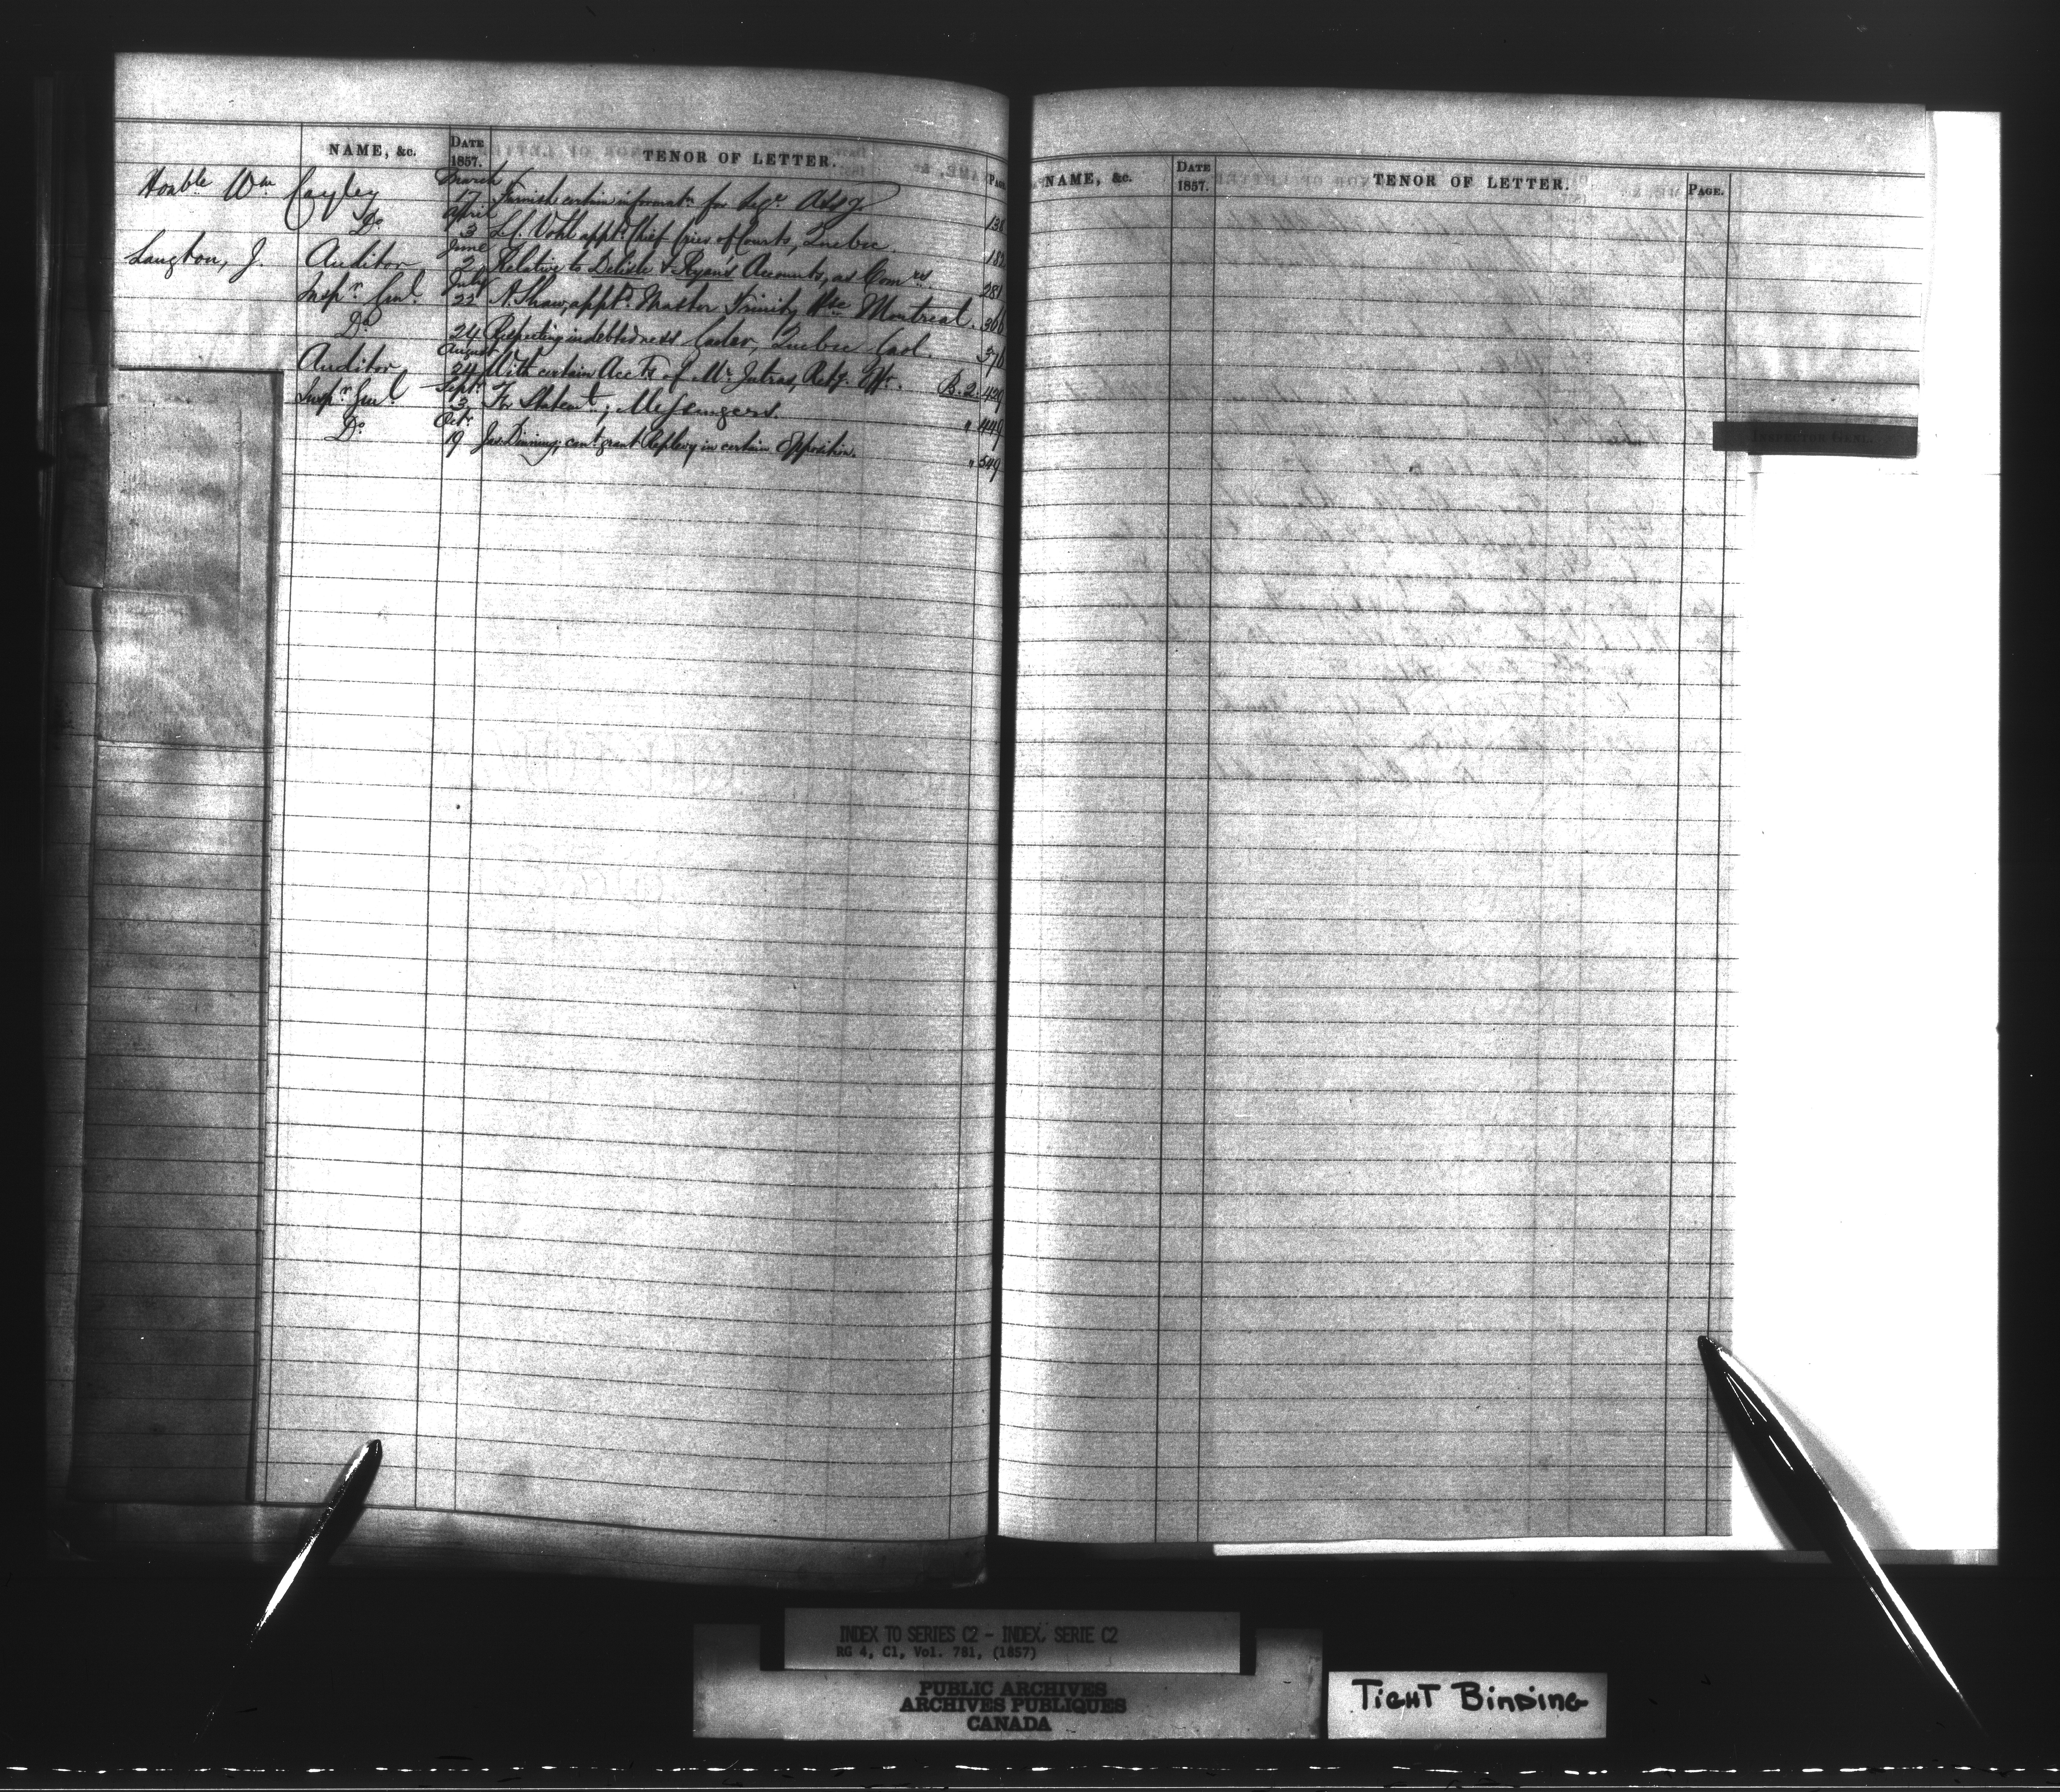 NAME, &c. DATE 1857. TENOR OF LETTER. PAGE.
Honble Wm Cayley March 17 Furnish certain informatn for Legve Assy. 138
Do April 3 L. Vohl apptd Chief Crier of Courts, Quebec 182
Langton, J. Auditor June 2 Relative to Delisle & Ryan's Accounts, as Comrs. 281
Inspr Genl July 22 A. Shaw, apptd Master Trinity Hse Montreal. 366
Do 24 Respecting indebtedness Quebec Gaol. 370
Auditor August 24 With certain Accts of Mr Jutras, Retg. Offr. B. 2. 429
Inspr Genl Septr 3 For Statemt, Messengers. " 449
Do Octr 19 Jas Dinning; cant grant Replevy in certain Opposition. " 549
NAME, &c. DATE 1857. TENOR OF LETTER. PAGE.
INSPECTOR GENL.
INDEX TO SERIES C2 - INDEX, SERIE C2
RG 4, C1, Vol. 781, (1857)
PUBLIC ARCHIVES
ARCHIVES PUBLIQUES
CANADA
TIGHT BINDING